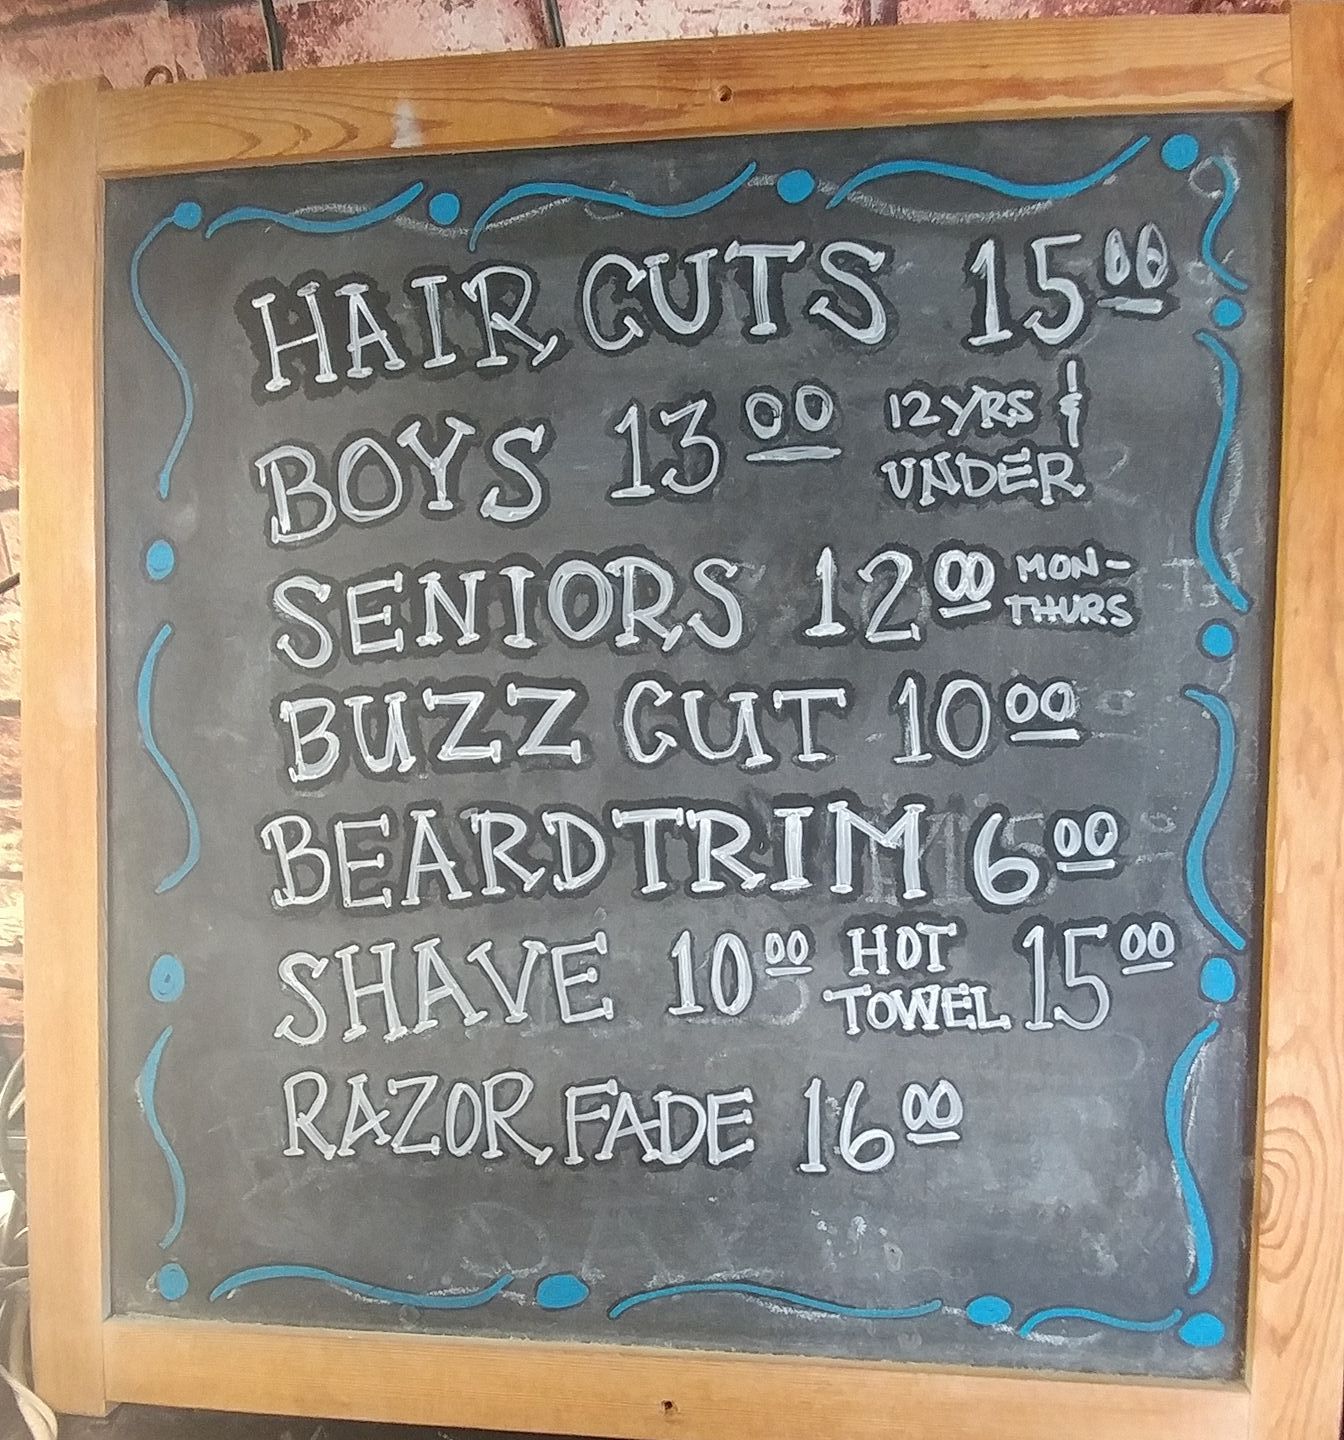 HAIR CUTS 15 00
BOYS 13 00 12 YRS &
UNDER
SENIORS 12 00 MON-
THURS
BUZZ CUT 10 00
BEARD TRIM 6 00
SHAVE 10 00 HOT
TOWEL 15 00
RAZOR FADE 16 00